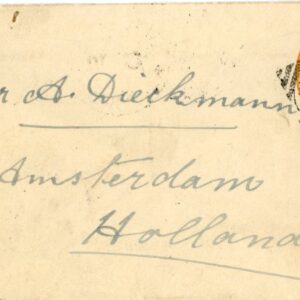 r A. Dieckmann
Amsterdam
Holland